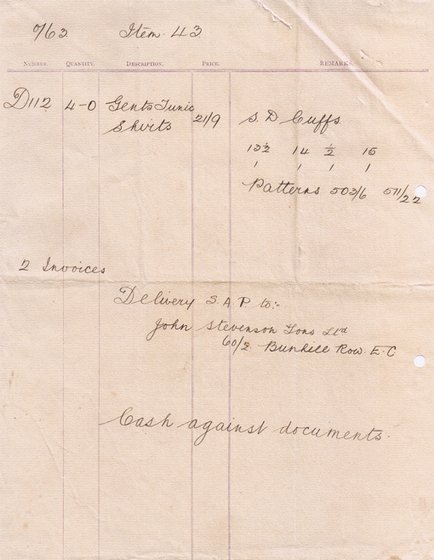 7/63 Item 43
NUMBER. QUANTITY. DESCRIPTION. PRICE. REMARKS.
D112 4-0 Gents Tunic 21/9 S. D Cuffs
Shirts
13½ 14 ½ 15
1 1 1 1
Patterns 503/6 511/22
2 Invoices
Delivery S. A. P. to:-
John Stevenson Sons Ltd
60/2 Bunhill Row. E.C
Cash against documents.